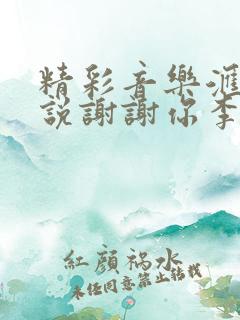 精彩音樂滙
說謝謝你李
紅顔禍水
未经同意禁止转载